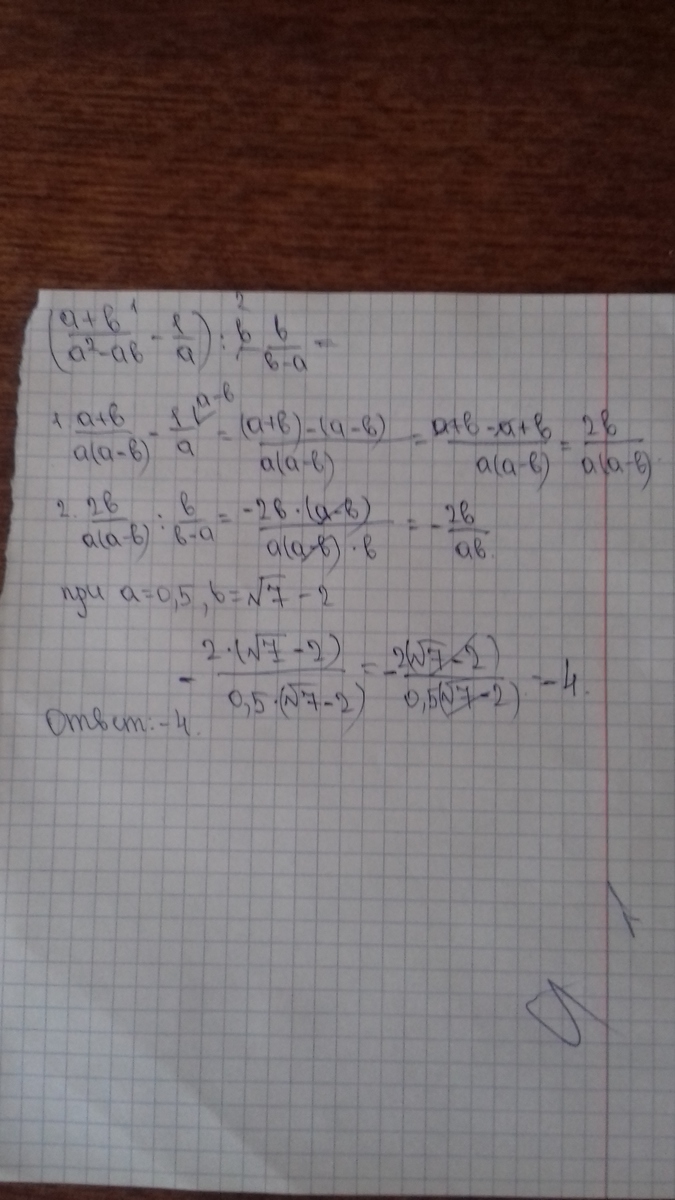 ((a+b)/(a²-ab) ¹- 1/a) :² b/(b-a) =
1 (a+b)/(a(a-b)) - 1/a ^(a-b) = ((a+b)-(a-b))/(a(a-b)) = (a+b-a+b)/(a(a-b)) = 2b/(a(a-b)).
2. 2b/(a(a-b)) : b/(b-a) = (-2b·(a-b))/(a(a-b)·b) = - 2b/ab.
при a=0,5, b=√7 - 2
- (2·(√7-2))/(0,5·(√7-2)) = - (2(√7-2))/(0,5(√7-2)) = -4.
Ответ: -4.